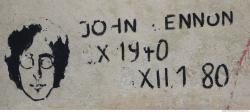 JOHN LENNON
X 1940
XII 1 80